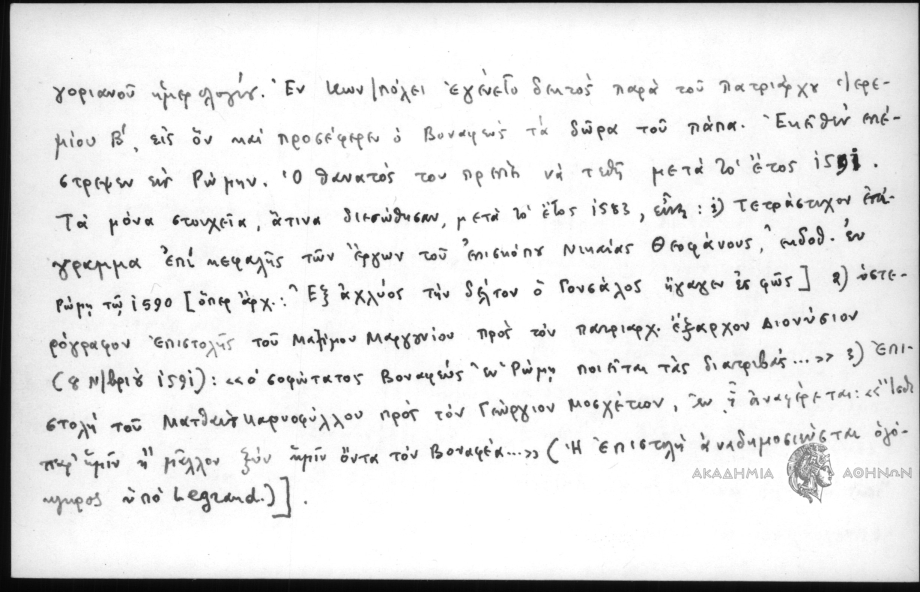 γοριανοῦ ἡμερολογίου. Ἐν Κων/πόλει ἐγένετο δεκτὸς παρὰ τοῦ πατριάρχου Ἱερε-
μίου Β΄, εἰς ὃν καὶ προσέφερεν ὁ Βοναφεὺς τὰ δῶρα τοῦ πάπα. Ἐκεῖθεν ἐπέ-
στρεψεν εἰς Ρώμην. Ὁ θάνατός του πρέπει νὰ τεθῇ μετὰ τὸ ἔτος 1591.
Τὰ μόνα στοιχεῖα, ἅτινα διεσώθησαν, μετὰ τὸ ἔτος 1583, εἶναι: 1) Τετράστιχον ἐπί-
γραμμα ἐπὶ κεφαλῆς τῶν ἔργων τοῦ ἐπισκόπου Νικαίας Θεοφάνους, ἐκδοθ. ἐν
Ρώμῃ τῷ 1590 [ὅπερ ἄρχ.: Ἐξ ἀχλύος τὴν δέλτον ὁ Γονσάλος ἤγαγεν ἐς φῶς] 2) ὑστε-
ρόγραφον ἐπιστολῆς τοῦ Μαξίμου Μαργουνίου πρὸς τὸν πατριαρχ. ἔξαρχον Διονύσιον
(8 Ν/βρίου 1591): «ὁ σοφώτατος Βοναφεὺς ἐν Ρώμῃ ποιεῖται τὰς διατριβάς...» 3) Ἐπι-
στολὴ τοῦ Ματθαίου Καρυοφύλλου πρὸς τὸν Γεώργιον Μοσχέτιον, ἐν ᾗ ἀναφέρεται: «Ἴσθι
παρ' ἡμῖν ἢ μᾶλλον ξὺν ἡμῖν ὄντα τὸν Βοναφέα...» (Ἡ ἐπιστολὴ ἀναδημοσιεύεται ὁλό-
κληρος ὑπὸ Legrand.)].
ΑΚΑΔΗΜΙΑ ΑΘΗΝΩΝ